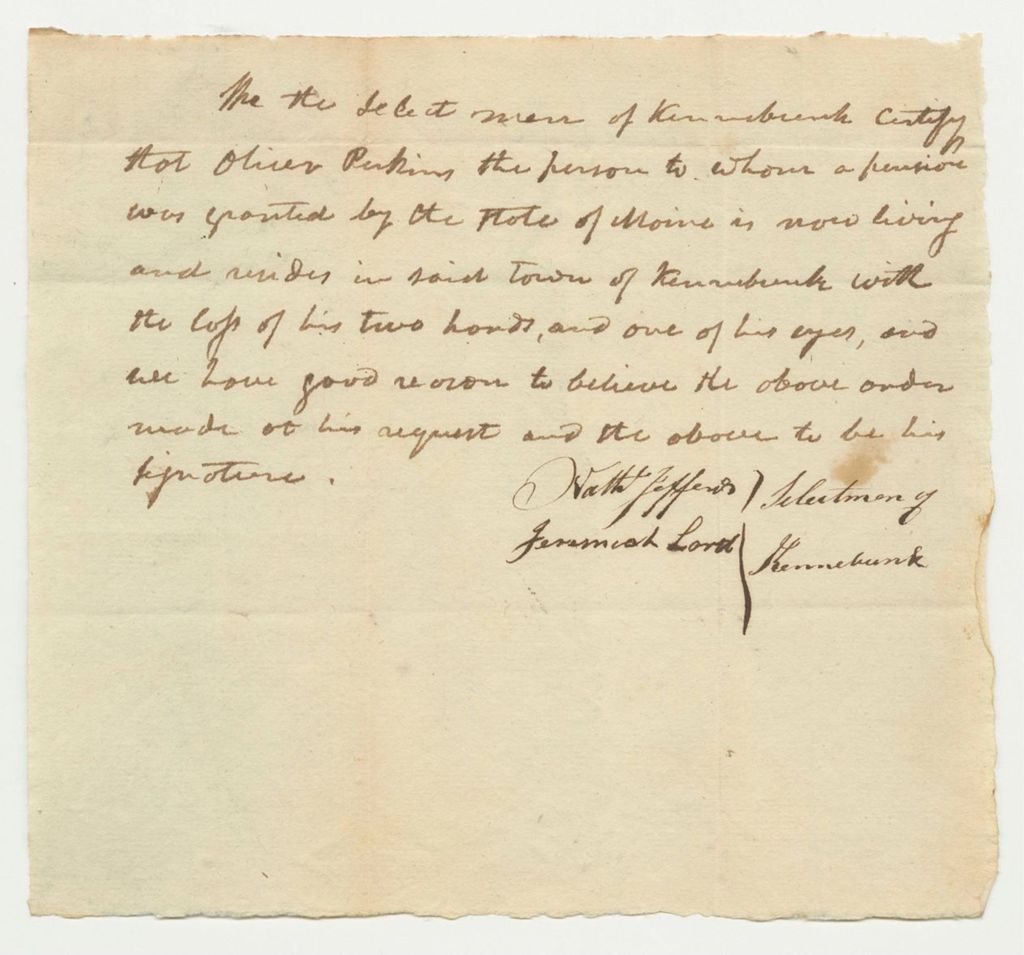 We the Select men of Kennebunk Certify
that Oliver Perkins the person to whom a pension
was granted by the State of Maine is now living
and resides in said town of Kennebunk with
the loss of his two hands, and one of his eyes, and
we have good reason to believe the above order
made at his request and the above to be his
signature.
Nathl Jefferds } Selectmen of
Jeremiah Lord } Kennebunk